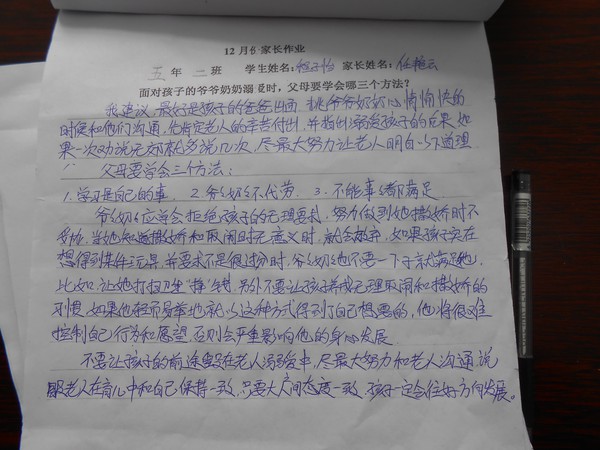 12月份家长作业
五 年 二 班 学生姓名: 家长姓名: 任艳云
面对孩子的爷爷奶奶溺爱时,父母要学会哪三个方法?
我建议,最好是孩子的爸爸出面,挑爷爷奶奶心情愉快的
时候和他们沟通,先肯定老人的辛苦付出,并指出溺爱孩子的后果,如
果一次劝说无效就多说几次,尽最大努力让老人明白一下道理
父母要学会三个方法:
1.学习是自己的事、2.爷奶不代劳、3.不能事事都满足
爷奶应学会拒绝孩子的无理要求,努力做到她撒娇时不
妥协,当她知道撒娇和取闹时无意义时,就会放弃,如果孩子实在
想得到某件玩具,并要求不是很过份时,爷奶也不要一下子就满足她,
比如:让她打扫卫生"挣"钱,另外不要让孩子养成无理取闹和撒娇的
习惯,如果他轻而易举地就以这种方式得到了自己想要的,他将很难
控制自己行为和愿望,否则会严重影响他的身心发展.
不要让孩子的前途毁在老人溺爱中,尽最大努力和老人沟通,说
服老人在育儿中和自己保持一致,只要大人间态度一致,孩子一定会往好方向发展。